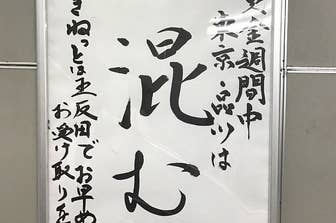 黄金週間中
東京・品川は
混む
きねっとは五反田でお早め
お受け取りを